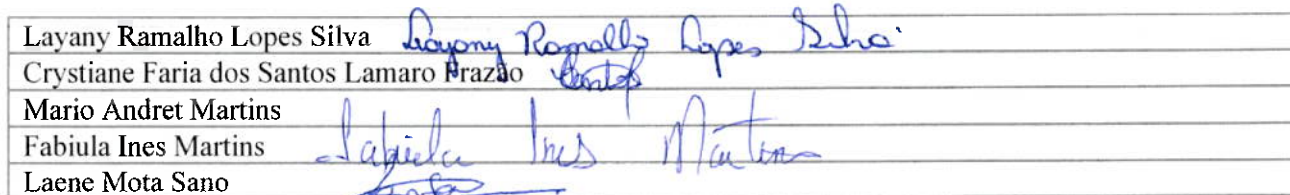 Layany Ramalho Lopes Silva Layany Ramalho Lopes Silva
Crystiane Faria dos Santos Lamaro Frazão
Mario Andret Martins
Fabiula Ines Martins Fabiula Ines Martins
Laene Mota Sano